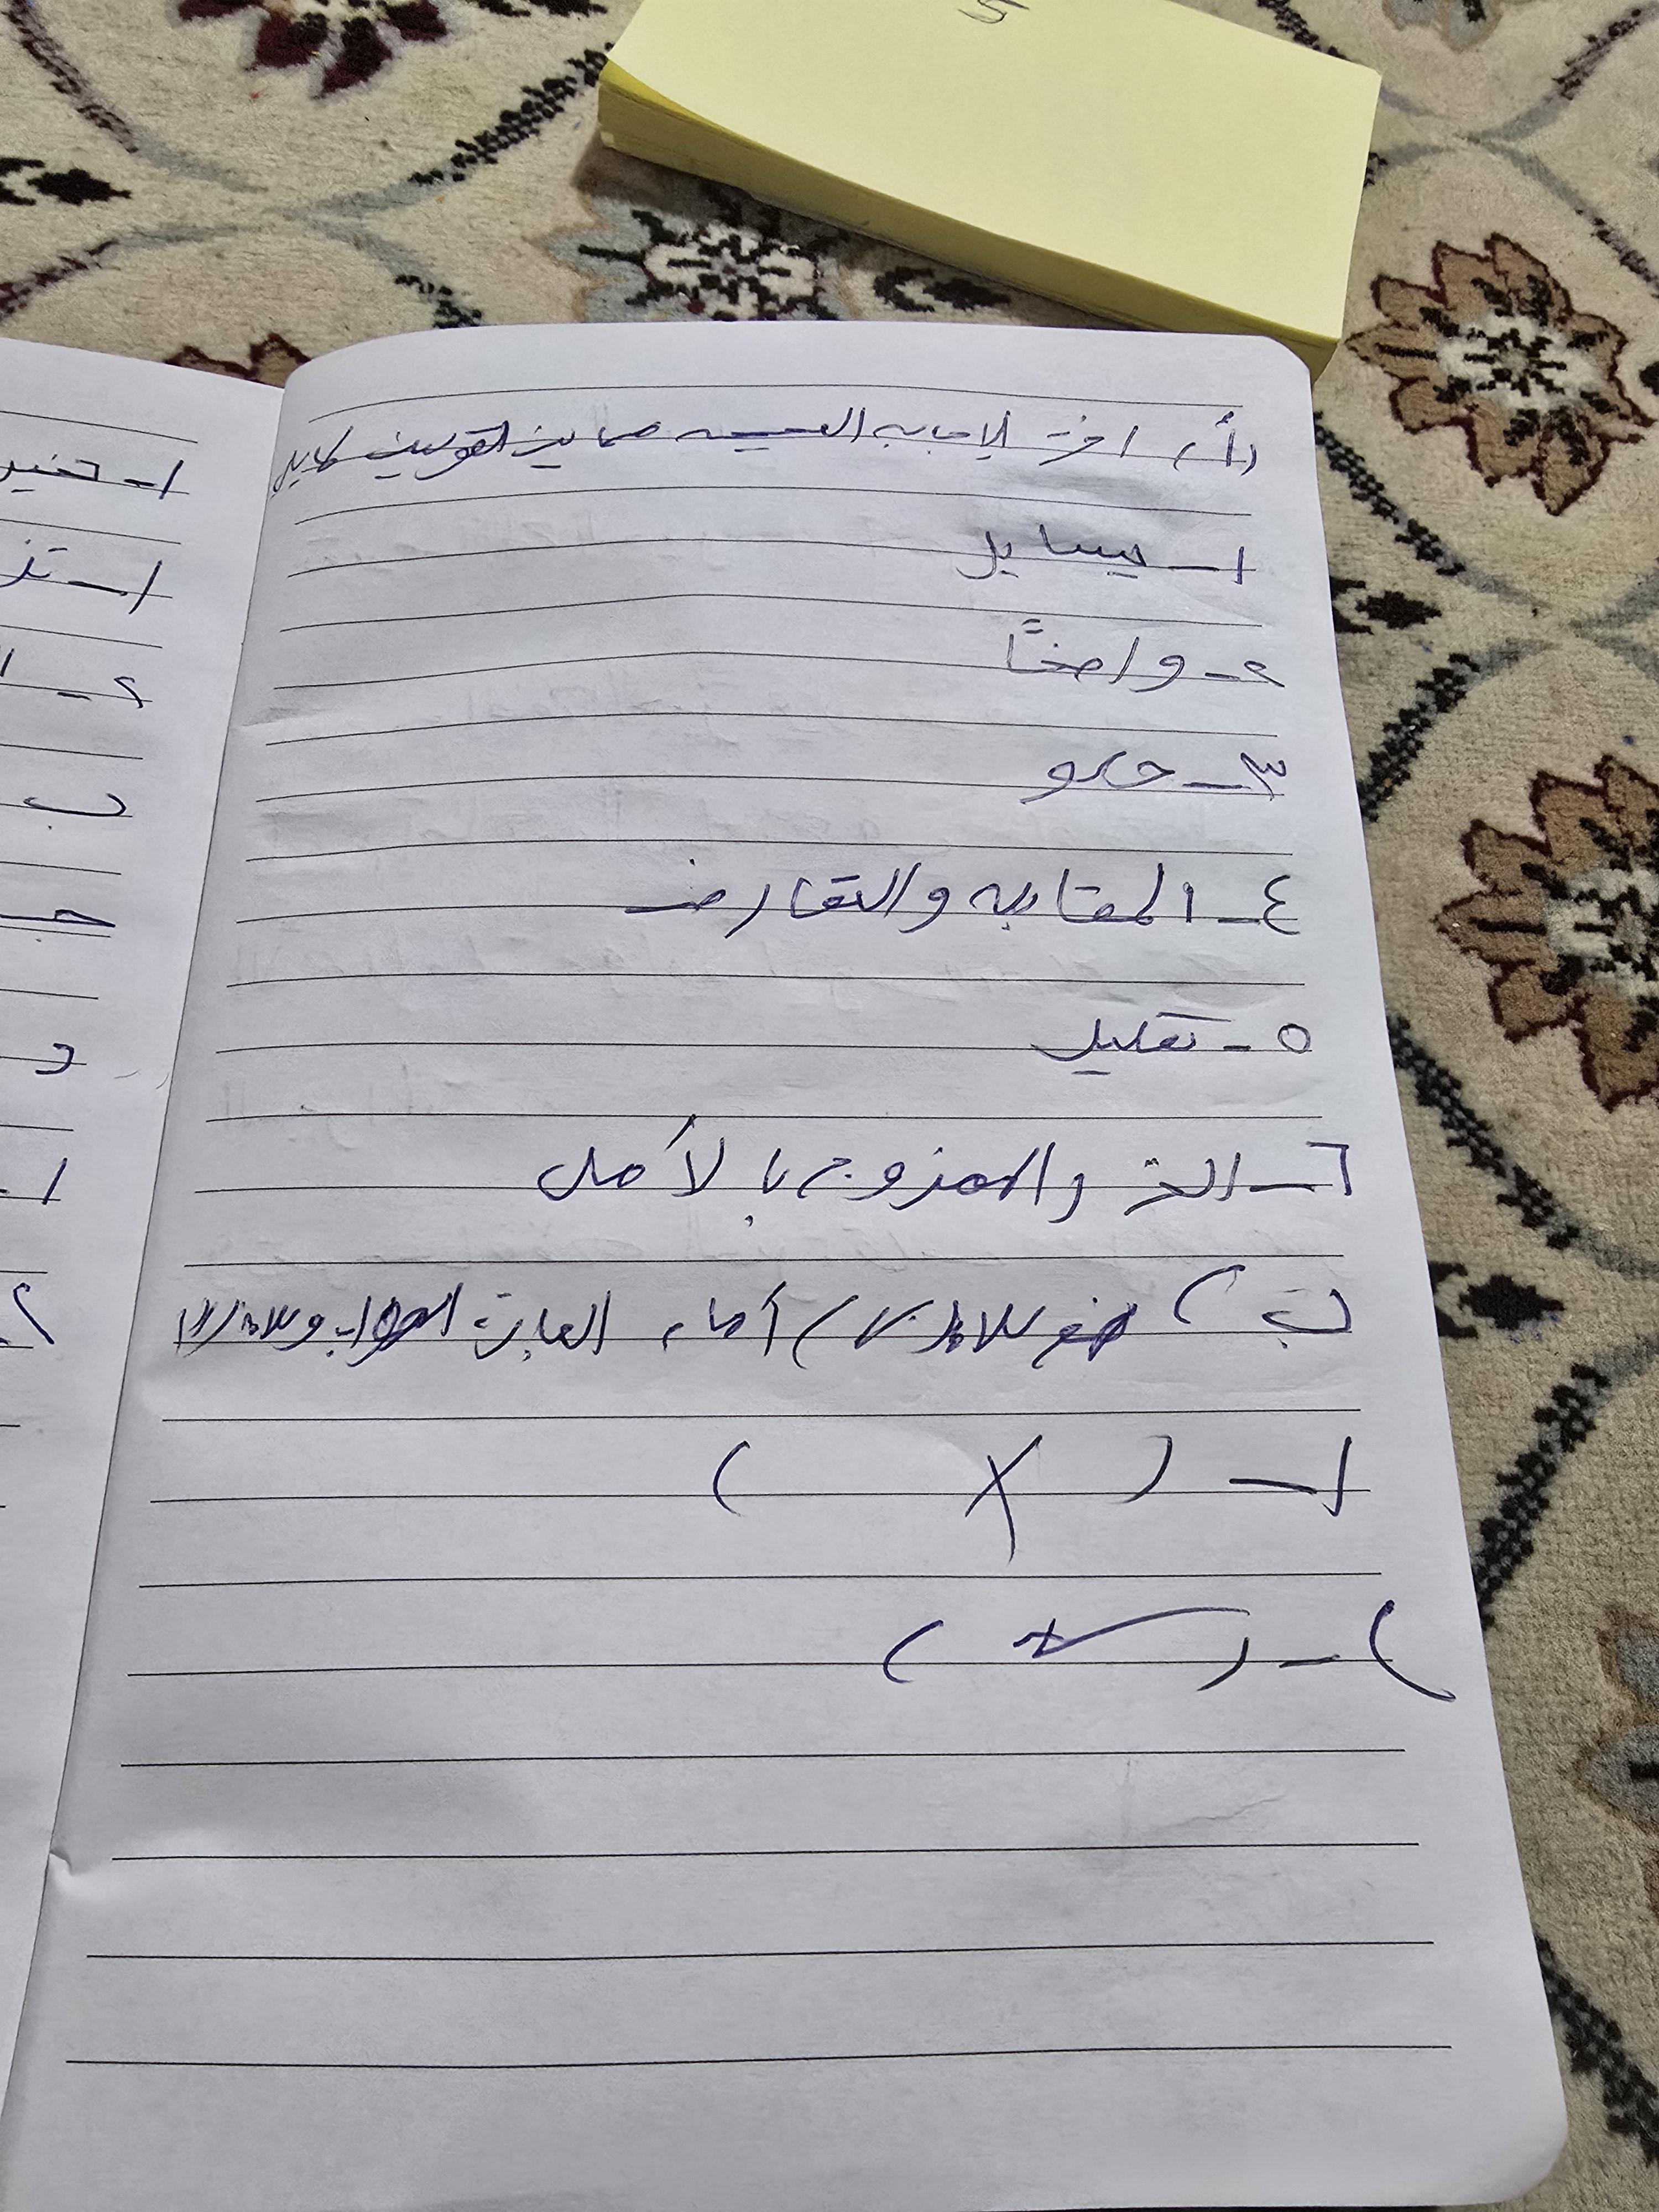 (أ) اختر الإجابه الصحيحه مما بين القوسين لما يلي
١- يساير
٢- واضحًا
٣- حلو
٤- المقابله والتعارض
٥- تعليل
٦- الحزن والممزوج بالأمل
ب) ضع علامة (✓) أمام العبارة الصواب وعلامة
١- ( X )
٢- ( ✓ )
١- تتميز
١-
٢-
ب
جـ
د
١-
٢-
5